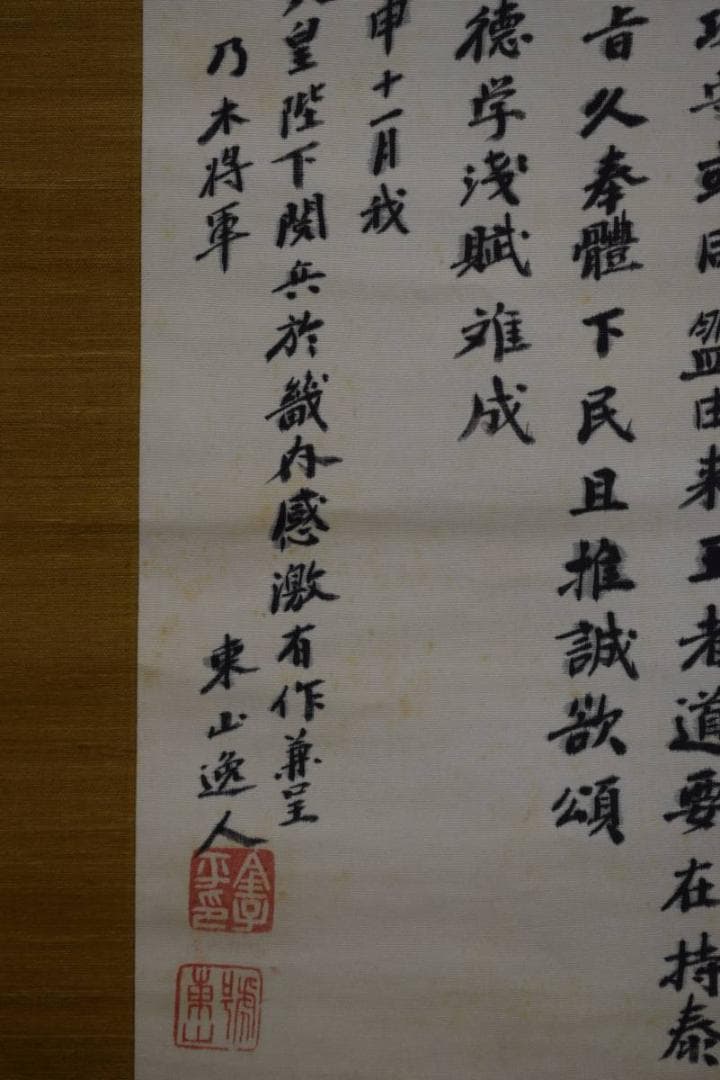 由来王者道要在持泰
旨久奉體下民且推誠欲頌
德学淺賦難成
申十一月我
皇陛下閲兵於畿内感激有作兼呈
乃木将軍
東山逸人
號東山